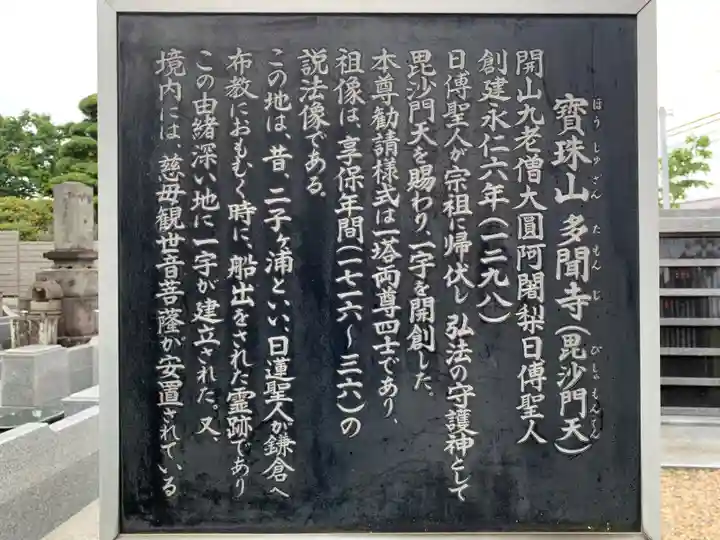 寶珠山 多聞寺(毘沙門天)
ほうしゅざん たもんじ びしゃもんてん
開山九老僧大圓阿闍梨日傳聖人
創建永仁六年(一二九八)
日傳聖人が宗祖に帰伏し弘法の守護神として
毘沙門天を賜わり、一宇を開創した。
本尊勧請様式は一塔両尊四士であり、
祖像は、享保年間(一七一六〜三六)の
説法像である。
この地は、昔、二子ヶ浦といい、日蓮聖人が鎌倉へ
布教におもむく時に、船出をされた霊跡であり
この由緒深い地に一宇が建立された。又、
境内には、慈母観世音菩薩が安置されている